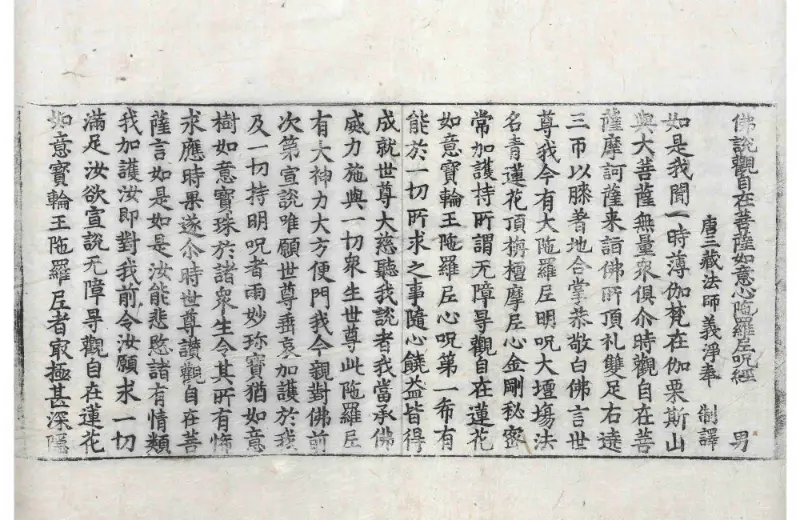 佛說觀自在菩薩如意心陁羅尼呪經 男
唐三藏法師義淨奉 制譯
如是我聞一時薄伽梵在伽栗斯山
與大菩薩無量衆俱尒時觀自在菩
薩摩訶薩来詣佛所頂礼雙足右遶
三帀以膝著地合掌恭敬白佛言世
尊我今有大陁羅尼明呪大壇塲法
名青蓮花頂栴檀摩尼心金剛秘密
常加護持所謂无障㝵觀自在蓮花
如意寶輪王陁羅尼心呪第一希有
能於一切所求之事隨心饒益皆得
成就世尊大慈聽我說者我當承佛
威力施與一切衆生世尊此陁羅尼
有大神力大方便門我今親對佛前
次第宣說唯願世尊垂哀加護於我
及一切持明呪者雨妙珎寶猶如意
樹如意寶珠於諸衆生令其所有悕
求應時果遂尒時世尊讚觀自在菩
薩言如是如是汝能悲愍諸有情類
我加護汝即對我前令汝願求一切
滿足汝欲宣說无障㝵觀自在蓮花
如意寶輪王陁羅尼者㝡極甚深隱